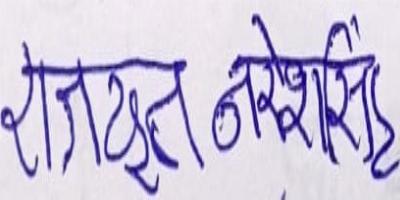 राजपूत नरेशसिंह